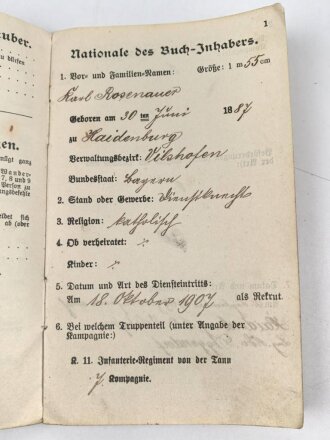 1
Nationale des Buch-Inhabers.
1. Vor- und Familien-Namen: Größe: 1 m 55 cm
Karl Rosenauer
Geboren am 30 ten Juni 1887
zu Haidenburg
Verwaltungsbezirk: Vilshofen
Bundesstaat: Bayern
2. Stand oder Gewerbe: Dienstknecht
3. Religion: katholisch
4. Ob verheiratet:
Kinder:
5. Datum und Art des Diensteintritts:
Am 18. Oktober 1907 als Rekrut.
6. Bei welchem Truppenteil (unter Angabe der
Kompagnie):
K. 11. Infanterie-Regiment von der Tann
7. Kompagnie.